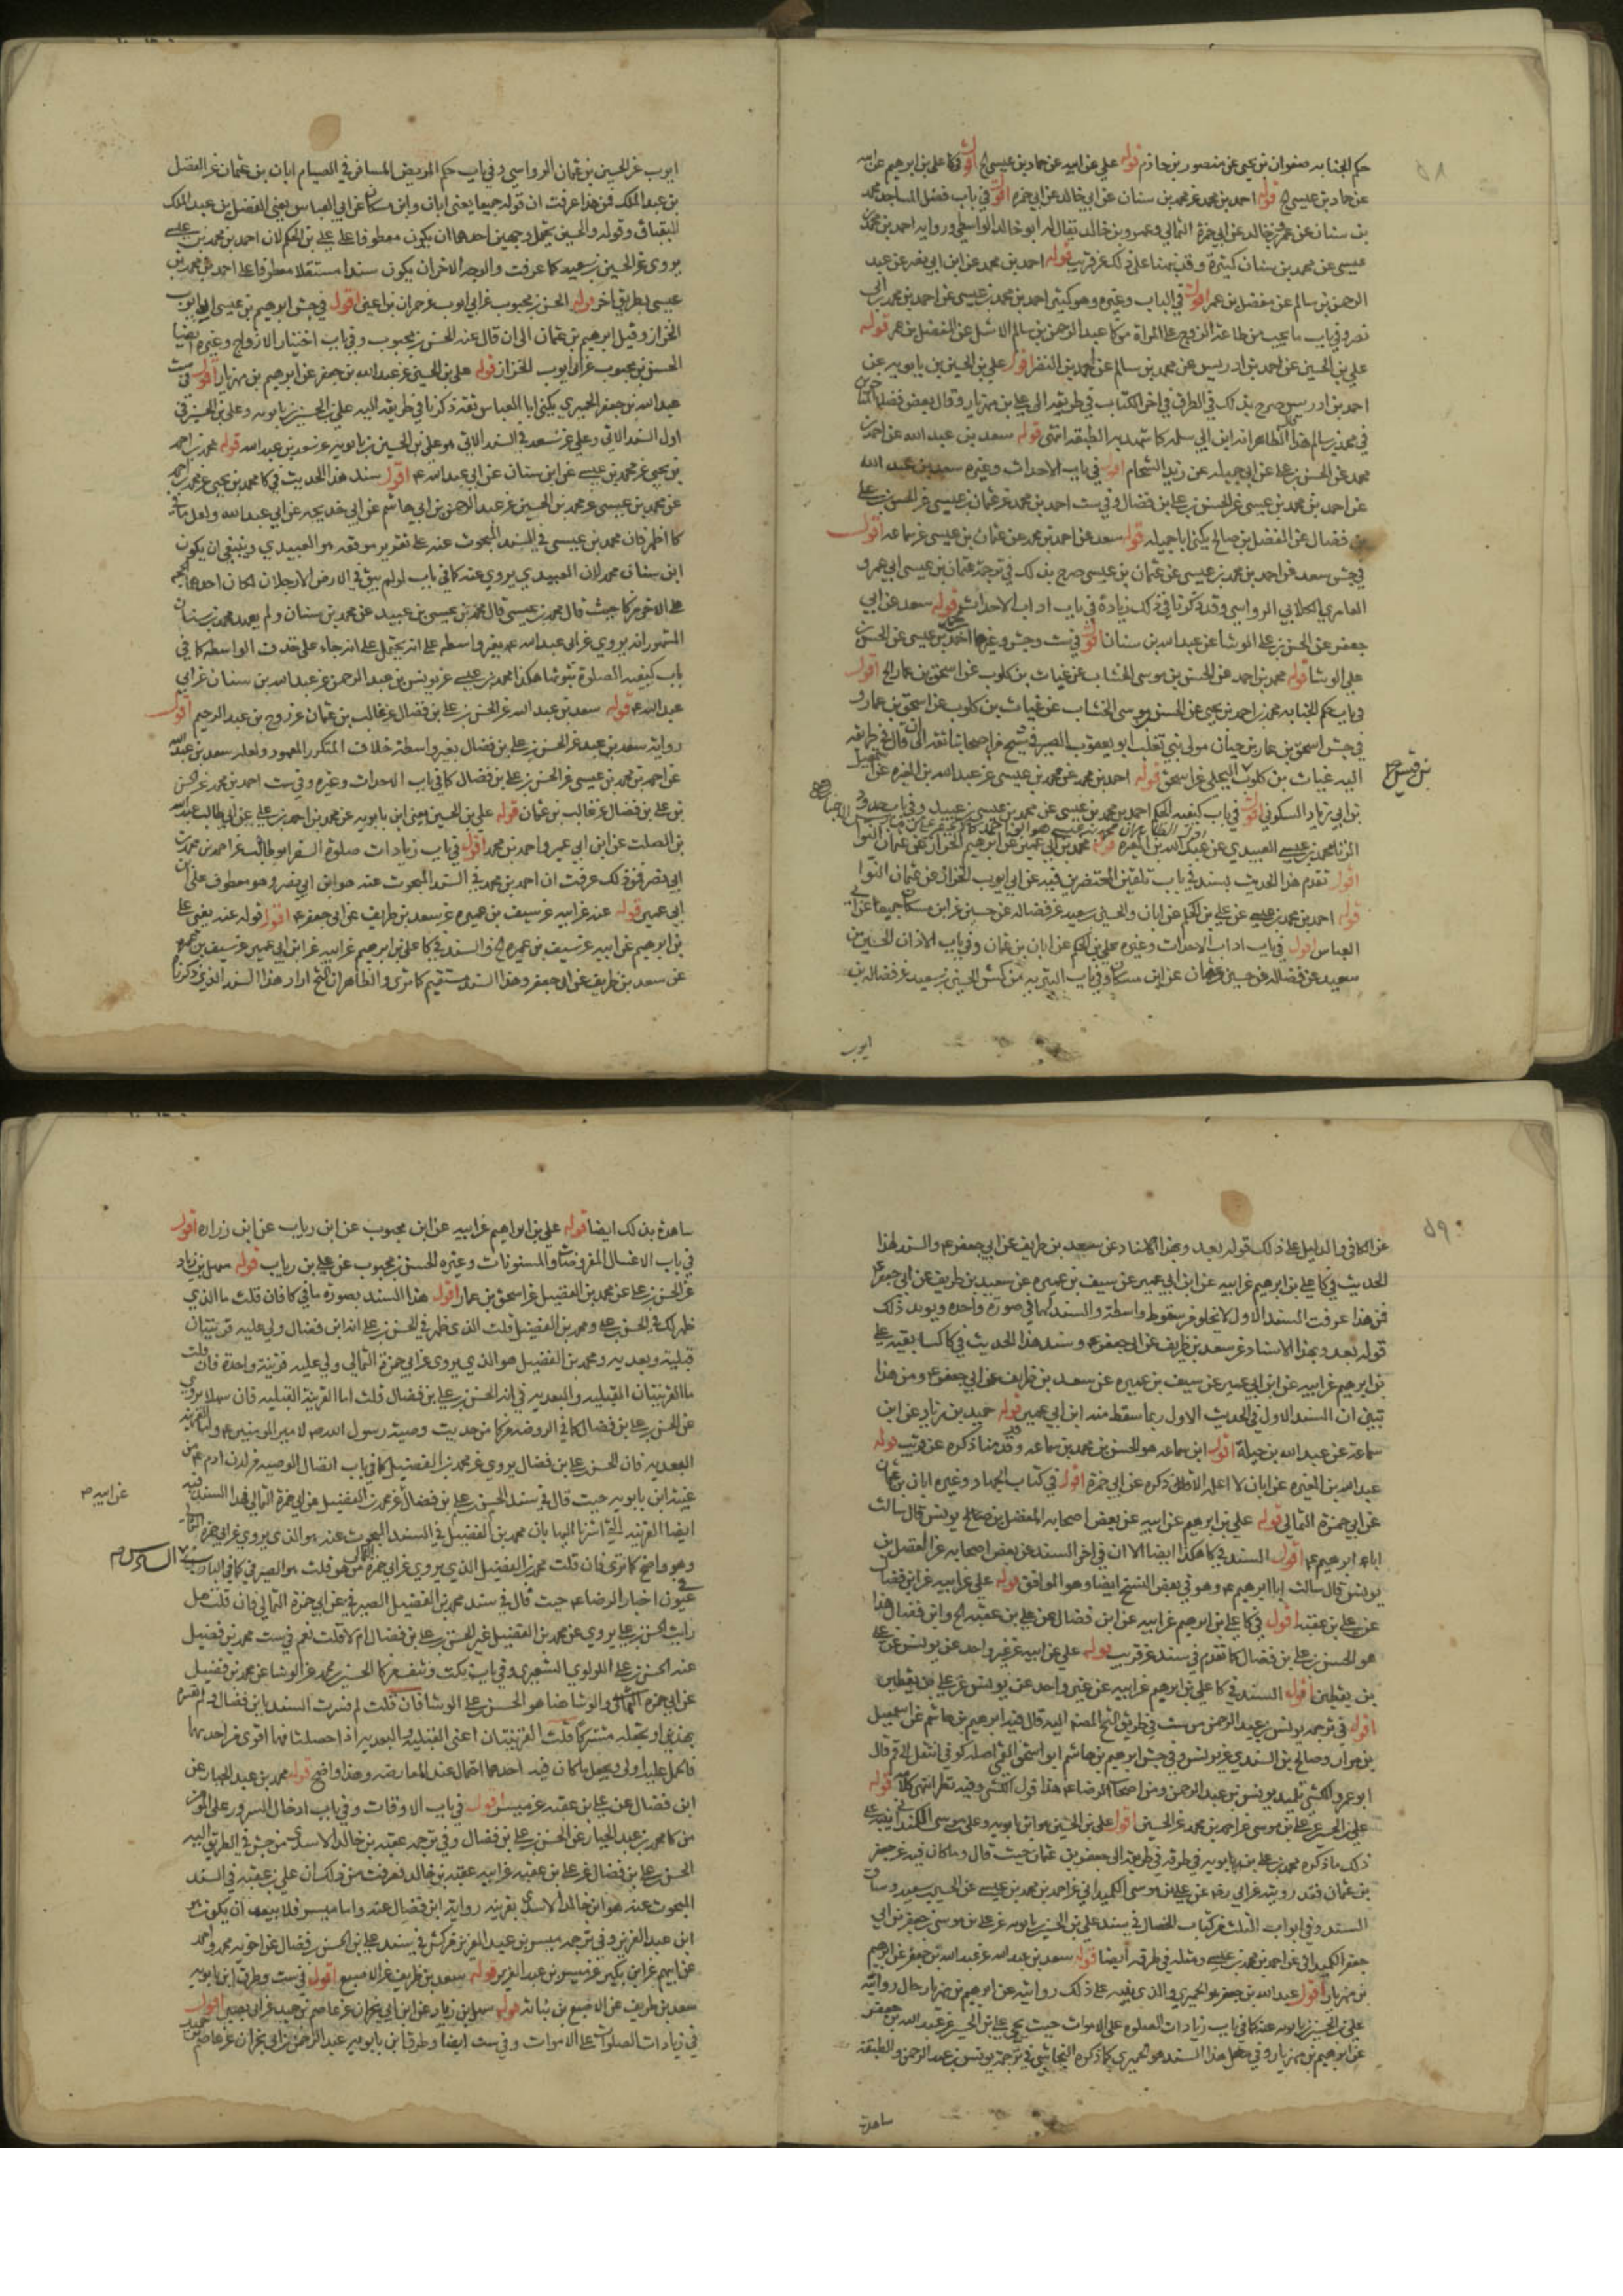 ٥٨
حكم الجنابه صفوان بن يحيى عن منصور بن حازم قوله علي عن ابيه عن حماد بن عيسى الخ اقول في كا علي بن ابرهيم عن ابيه
عن حماد بن عيسى الخ قوله احمد بن محمد عن محمد بن سنان عن ابي خالد عن ابي حمزه اقول في باب فضل المساجد محمد
بن سنان عن عمرو بن خالد عن ابي حمزة الثمالي وعمرو بن خالد يقال له ابو خالد الواسطي ورواية احمد بن محمد بن
عيسى عن محمد بن سنان كثيرة وقد نبهنا على ذلك عن قريب قوله احمد بن محمد عن ابن ابي نصر عن عبد
الرحمن بن سالم عن مفضل بن عمر اقول في الباب وغيره وهو كثير احمد بن محمد بن عيسى عن احمد بن محمد بن ابي
نصر وفي باب ما يجب من طاعة الزوج على المراة من كا عبد الرحمن بن سالم الاشل عن المفضل بن عمر قوله
علي بن الحسين عن احمد بن ادريس عن محمد بن سالم عن احمد بن النضر اقول علي بن الحسين بن بابويه عن
احمد بن ادريس صرح بذلك في الطرق في اخر الكتاب في طريقه الى علي بن مهزيار وقال بعض فضلا
في محمد بن سالم هذا الظاهر انه ابن ابي سلمه كما تشهد به الطبقه انتهى قوله سعد بن عبد الله عن احمد بن
محمد عن الحسن بن علي عن ابي جميله عن زيد الشحام اقول في باب الاحداث وغيره سعد بن عبد الله
عن احمد بن محمد بن عيسى عن الحسن بن علي بن فضال وفي ست احمد بن محمد عن عثمان بن عيسى عن الحسن بن علي
بن فضال عن المفضل بن صالح يكنى ابا جميله قوله سعد عن احمد بن محمد عن عثمان بن عيسى عن سماعه اقول
في جش سعد عن احمد بن محمد بن عيسى عن عثمان بن عيسى صرح بذلك في ترجمة عثمان بن عيسى ابي عمرو
العامري الكلابي الرواسي وقد ذكرنا في ذلك زيادة في باب اداب الاحداث قوله سعد عن ابي
جعفر عن الحسن بن علي الوشا عن عبد الله بن سنان اقول في ست وجش وغيرها احمد بن عيسى عن الحسن بن
علي الوشا قوله محمد بن احمد عن الحسن بن موسى الخشاب عن غياث بن كلوب عن اسحق بن عمار الخ اقول
في باب حكم الجنابه محمد بن احمد بن يحيى عن الحسن بن موسى الخشاب عن غياث بن كلوب عن اسحق بن عمار و
في جش اسحق بن عمار بن حيان مولى بني تغلب ابو يعقوب الصيرفي شيخ من اصحابنا ثقه الى ان قال في طريقه
اليه غياث بن كلوب البجلي عن اسحق قوله احمد بن محمد عن محمد بن عيسى عن عبد الله بن المغيره عن اسمعيل
بن ابي زياد السكوني اقول في باب كيفيه الحكم احمد بن محمد بن عيسى عن محمد بن عيسى بن عبيد وفي باب حدود
الزنا محمد بن عيسى العبيدي عن عبد الله بن المغيره قوله محمد بن ابي عمير عن ابرهيم الخزاز عن عثمان النوا
اقول تقدم هذا الحديث بسنده في باب تلقين المحتضرين فيه عن ابي ايوب الخزاز عن عثمان النوا
قوله احمد بن محمد بن عيسى عن علي بن الحكم عن ابان والحسين بن سعيد عن فضاله عن حسين عن ابن مسكان جميعا عن ابي
العباس اقول في باب اداب الاحداث وغيره علي بن الحكم عن ابان بن عثمان وفي باب الاذان الحسين بن
سعيد عن فضاله عن حسين بن عثمان عن ابن مسكان وفي باب التدبير من كش الحسين بن سعيد عن فضاله بن
ايوب
ايوب عن الحسين بن عثمان الرواسي وفي باب حكم المريض المسافر في الصيام ابان بن عثمان عن الفضل
بن عبد الملك فمن هذا عرفت ان قوله جميعا يعني ابان وابن مسكان عن ابي العباس يعني الفضل بن عبد الملك
البقباق وقوله والحسين يحتمل وجهين احدهما ان يكون معطوفا على علي بن الحكم لان احمد بن محمد بن عيسى
يروي عن الحسين بن سعيد كما عرفت والوجه الاخر ان يكون سندا مستقلا معطوفا على احمد بن محمد بن
عيسى بطريق اخر قوله الحسن بن محبوب عن ابي ايوب عن حمران بن اعين اقول في جش ابرهيم بن عيسى ابو ايوب
الخزاز وقيل ابرهيم بن عثمان الى ان قال عنه الحسن بن محبوب وفي باب اختيار الازواج وغيره ايضا
الحسن بن محبوب عن ابي ايوب الخزاز قوله علي بن الحسين عن عبد الله بن جعفر عن ابرهيم بن مهزيار اقول في ست
عبد الله بن جعفر الحميري يكنى ابا العباس ثقه ذكرنا في طريقه اليه علي بن الحسين بن بابويه وعلي بن الحسين في
اول السند الاتي وعلي عن سعد في السند الاتي هو علي بن الحسين بن بابويه عن سعد بن عبد الله قوله محمد بن احمد
بن يحيى عن محمد بن عيسى عن ابن سنان عن ابي عبد الله ع اقول سند هذا الحديث في كا محمد بن يحيى عن محمد بن احمد
عن محمد بن عيسى عن محمد بن الحسين عن عبد الرحمن بن ابي هاشم عن ابي خديجه عن ابي عبد الله ولعل ما في
كا اظهر فان محمد بن عيسى في السند المبحوث عنه على تقرير موقعه هو العبيدي وينبغي ان يكون
ابن سنان محمد لان العبيدي يروي عنه كما في باب لو لم يبق في الارض الا رجلان لكان احدهما الحجه
على الاخر من كا حيث قال محمد بن عيسى قال محمد بن عيسى بن عبيد عن محمد بن سنان ولم يعهد محمد بن سنان
المشهور انه يروي عن ابي عبد الله ع بغير واسطه على انه يحتمل على انه جاء على حذف الواسطه كما في
باب كيفيه الصلوة بتوثها هكذا محمد بن عيسى عن يونس بن عبد الرحمن عن عبد الله بن سنان عن ابي
عبد الله ع قوله سعد بن عبد الله عن الحسن بن علي بن فضال عن غالب بن عثمان عن روح بن عبد الرحيم اقول
روايه سعد بن عبد الله عن الحسن بن علي بن فضال بغير واسطه خلاف المتكرر المعهود ولعله سعد بن عبد الله
عن احمد بن محمد بن عيسى عن الحسن بن علي بن فضال كما في باب الاحداث وغيره وفي ست احمد بن محمد عن الحسن
بن علي بن فضال عن غالب بن عثمان قوله علي بن الحسين يعني ابن بابويه عن محمد بن احمد بن علي عن ابي طالب عبد الله
بن الصلت عن ابن ابي عمير واحمد بن محمد اقول في باب زيادات صلوة السفر ابو طالب عن احمد بن محمد بن
ابي نصر فمن ذلك عرفت ان احمد بن محمد في السند المبحوث عنه هو ابن ابي نصر وهو معطوف على ابن
ابي عمير قوله عنه عن ابيه عن سيف بن عميره عن سعد بن طريف عن ابي جعفر ع اقول قوله عنه يعني علي
بن ابرهيم عن ابيه عن سيف بن عميره الخ والسند في كا علي بن ابرهيم عن ابيه عن ابن ابي عمير عن سيف بن عميره
عن سعد بن طريف عن ابي جعفر وهذا السند مستقيم كما ترى والظاهر ان الشيخ اراد هذا السند الذي ذكرنا
٥٩
عن الكافي والدليل على ذلك قوله بعد وبهذا الاسناد عن سعد بن طريف عن ابي جعفر ع والسند لهذا
الحديث في كا علي بن ابرهيم عن ابيه عن ابن ابي عمير عن سيف بن عميره عن سعيد بن طريف عن ابي جعفر ع
فمن هذا عرفت السند الاول لا يخلو من سقوط واسطة والسند لهما في صورة واحده ويويد ذلك
قوله بعد وبهذا الاسناد عن سعد بن طريف عن ابي جعفر ع وسند هذا الحديث في كا كسابقيه علي
بن ابرهيم عن ابيه عن ابن ابي عمير عن سيف بن عميره عن سعد بن طريف عن ابي جعفر ع ومن هذا
تبين ان السند الاول في الحديث الاول ربما سقط منه ابن ابي عمير قوله حميد بن زياد عن ابن
سماعة عن عبد الله بن جبلة اقول ابن سماعه هو الحسن بن محمد بن سماعه وقد قدمنا ذكره عن قريب قوله
عبد الله بن المغيره عن ابان لا اعلمه الا قال ذكره عن ابي حمزة اقول في كتاب الجهاد وغيره ابان بن عثمان
عن ابي حمزة الثمالي قوله علي بن ابرهيم عن ابيه عن بعض اصحابه المفضل بن صالح يونس قال سالت
ابا ابرهيم ع اقول السند في كا هكذا ايضا الا ان في اخر السند عن بعض اصحابه عن المفضل بن
يونس قال سالت ابا ابرهيم ع وهو في بعض النسخ ايضا وهو الموافق قوله علي عن ابيه عن ابن فضال
عن علي بن عقبه اقول في كا علي بن ابرهيم عن ابيه عن ابن فضال عن علي بن عقبه الخ وابن فضال هذا
هو الحسن بن علي بن فضال كما تقدم في سند عن قريب قوله علي عن ابيه عن غير واحد عن يونس عن علي
بن يقطين اقول السند في كا علي بن ابرهيم عن ابيه عن غير واحد عن يونس عن علي بن يقطين
اقول في ترجمه يونس بن عبد الرحمن من ست في طريق الشيخ المصنف اليه قال فيه ابرهيم بن هاشم عن اسمعيل
بن مرار وصالح بن السندي عن يونس وفي جش ابرهيم بن هاشم ابو اسحق القمي اصله كوفي انتقل الى قم قال
ابو عمرو الكشي تلميذ يونس بن عبد الرحمن من اصحاب الرضا ع هذا قول الكشي وفيه نظر انتهى كلامه قوله
علي بن الحسين عن علي بن موسى عن احمد بن محمد عن الحسين اقول علي بن الحسين هو ابن بابويه وعلي بن موسى الكمنداني نبه على
ذلك ما ذكره محمد بن علي بن بابويه في طرقه في طريقه الى جعفر بن عثمان حيث قال وما كان فيه عن جعفر
بن عثمان فقد رويته عن ابي رضه عن علي بن موسى الكميداني عن احمد بن محمد بن عيسى عن الحسين بن سعيد وساق
السند وفي ابواب الثلث من كتاب الخصال في سند علي بن الحسين بن بابويه عن علي بن موسى بن جعفر بن ابي
جعفر الكميداني عن احمد بن محمد بن عيسى ومثله في طرقه ايضا قوله سعد بن عبد الله عن عبد الله بن جعفر عن ابرهيم
بن مهزيار اقول عبد الله بن جعفر هو الحميري والذي ينبه على ذلك روايته عن ابرهيم بن مهزيار حال رواية
علي بن الحسين بن بابويه عنه كما في باب زيادات الصلوة على الاموات حيث يجي علي بن الحسين عن عبد الله بن جعفر
عن ابرهيم بن مهزيار وفي مثل هذا السند هو الحميري كما ذكره النجاشي في ترجمة يونس بن عبد الرحمن والطبقة
ساهدة
ساهدة بذلك ايضا قوله علي بن ابراهيم عن ابيه عن ابن محبوب عن ابن رياب عن ابن زراره اقول
في باب الاغسال المفروضات والمسنونات وغيره الحسن بن محبوب عن علي بن رياب قوله سهل بن زياد
عن الحسن بن علي عن محمد بن الفضيل عن اسحق بن عمار اقول هذا السند بصورة ما في كا فان قلت ما الذي
ظهر لك في الحسن بن علي ومحمد بن الفضيل قلت الذي ظهر في الحسن بن علي انه ابن فضال ولي عليه قرينتان
قبلية وبعديه ومحمد بن الفضيل هو الذي يروي عن ابي حمزة الثمالي ولي عليه قرينة واحدة فان قلت
ما القرينتان القبليه والبعديه في انه الحسن بن علي بن فضال قلت اما القرينة القبليه فان سهلا يروي
عن الحسن بن علي بن فضال كما في الروضه من كا من حديث وصية رسول الله ص لامير المومنين ع واما القرينه
البعديه فان الحسن بن علي بن فضال يروي عن محمد بن الفضيل كما في باب اتصال الوصيه من لدن ادم ع من
غيبة ابن بابويه حيث قال في سند الحسن بن علي بن فضال عن محمد بن الفضيل عن ابي حمزة الثمالي فهذا السند فيه
ايضا القرينه التي اشرنا اليها بان محمد بن الفضيل في السند المبحوث عنه هو الذي يروي عن ابي حمزه الثمالي
وهو واضح كما ترى فان قلت محمد بن الفضيل الذي يروي عن ابي حمزه الثمالي من هو قلت هو الصيرفي كما في الباب
عيون اخبار الرضا ع حيث قال في سند محمد بن الفضيل الصيرفي عن ابي حمزة الثمالي فان قلت هل
رايت الحسن بن علي يروي عن محمد بن الفضيل غير الحسن بن علي بن فضال ام لا قلت نعم في ست محمد بن فضيل
عنه الحسن بن علي اللولوي الشعيري وفي باب نكت ونتف من كا الحسين بن محمد عن الوشا عن محمد بن فضيل
عن ابي حمزه الثمالي والوشا هنا هو الحسن بن علي الوشا فان قلت لم فسرت السند بابن فضال ولم تفسره
بهذين او تجعله مشتركا قلت القرينتان اعني القبلية والبعديه اذا حصلتا فهما اقوى من احدهما
فالحمل عليه اولى ويجعل ما كان فيه احدهما احتمال عند المعارضه وهذا واضح قوله محمد بن عبد الجبار عن
ابن فضال عن علي بن عقبه عن ميسر اقول في باب الاوقات وفي باب ادخال السرور على المومن
من كا محمد بن عبد الجبار عن الحسن بن علي بن فضال وفي ترجمه عقبه بن خالد الاسدي من جش في الطريق اليه
الحسن بن علي بن فضال عن علي بن عقبه عن ابيه عقبه بن خالد فعرفت من ذلك ان علي بن عقبه في السند
المبحوث عنه هو ابن خالد الاسدي بقرينه رواية ابن فضال عنه واما ميسر فلا يبعد ان يكون هو
ابن عبد العزيز وفي ترجمه ميسر بن عبد العزيز من كش في سند علي بن الحسن بن فضال عن اخويه محمد واحمد
عن ابيهم عن ابن بكير عن ميسر بن عبد العزيز قوله سعد بن طريف عن الاصبغ اقول في ست وطرق ابن بابويه
سعد بن طريف عن الاصبغ بن نباته قوله سهل بن زياد عن ابن ابي نجران عن عاصم بن حميد عن ابي بصير اقول
في زيادات الصلوات على الاموات وفي ست ايضا وطرق ابن بابويه عبد الرحمن بن ابي نجران عن عاصم بن حميد
عن ابيه ص
السادس